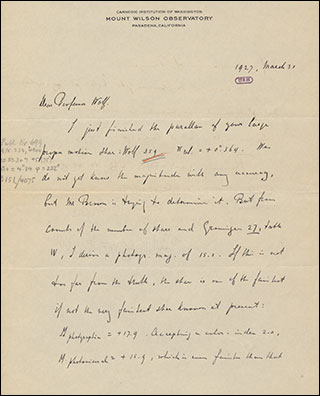 CARNEGIE INSTITUTION OF WASHINGTON
MOUNT WILSON OBSERVATORY
PASADENA, CALIFORNIA
1927, March 31
Dear Professor Wolf,
I just finished the parallax of your large
proper motion star: Wolf 359 π rel. = +0".364. We
do not yet know the magnitude with any accuracy,
but Mr is trying to determine it. But from
counts of the number of stars and Groningen 27, table
IV, I derive a photogr. mag. of 15.2. If this is not
too far from the truth, the star is one of the faintest
if not the very faintest star known at present:
M photographic = +17.9. Accepting a color-index 2.0,
M photovisual = +15.9, which is even fainter than that